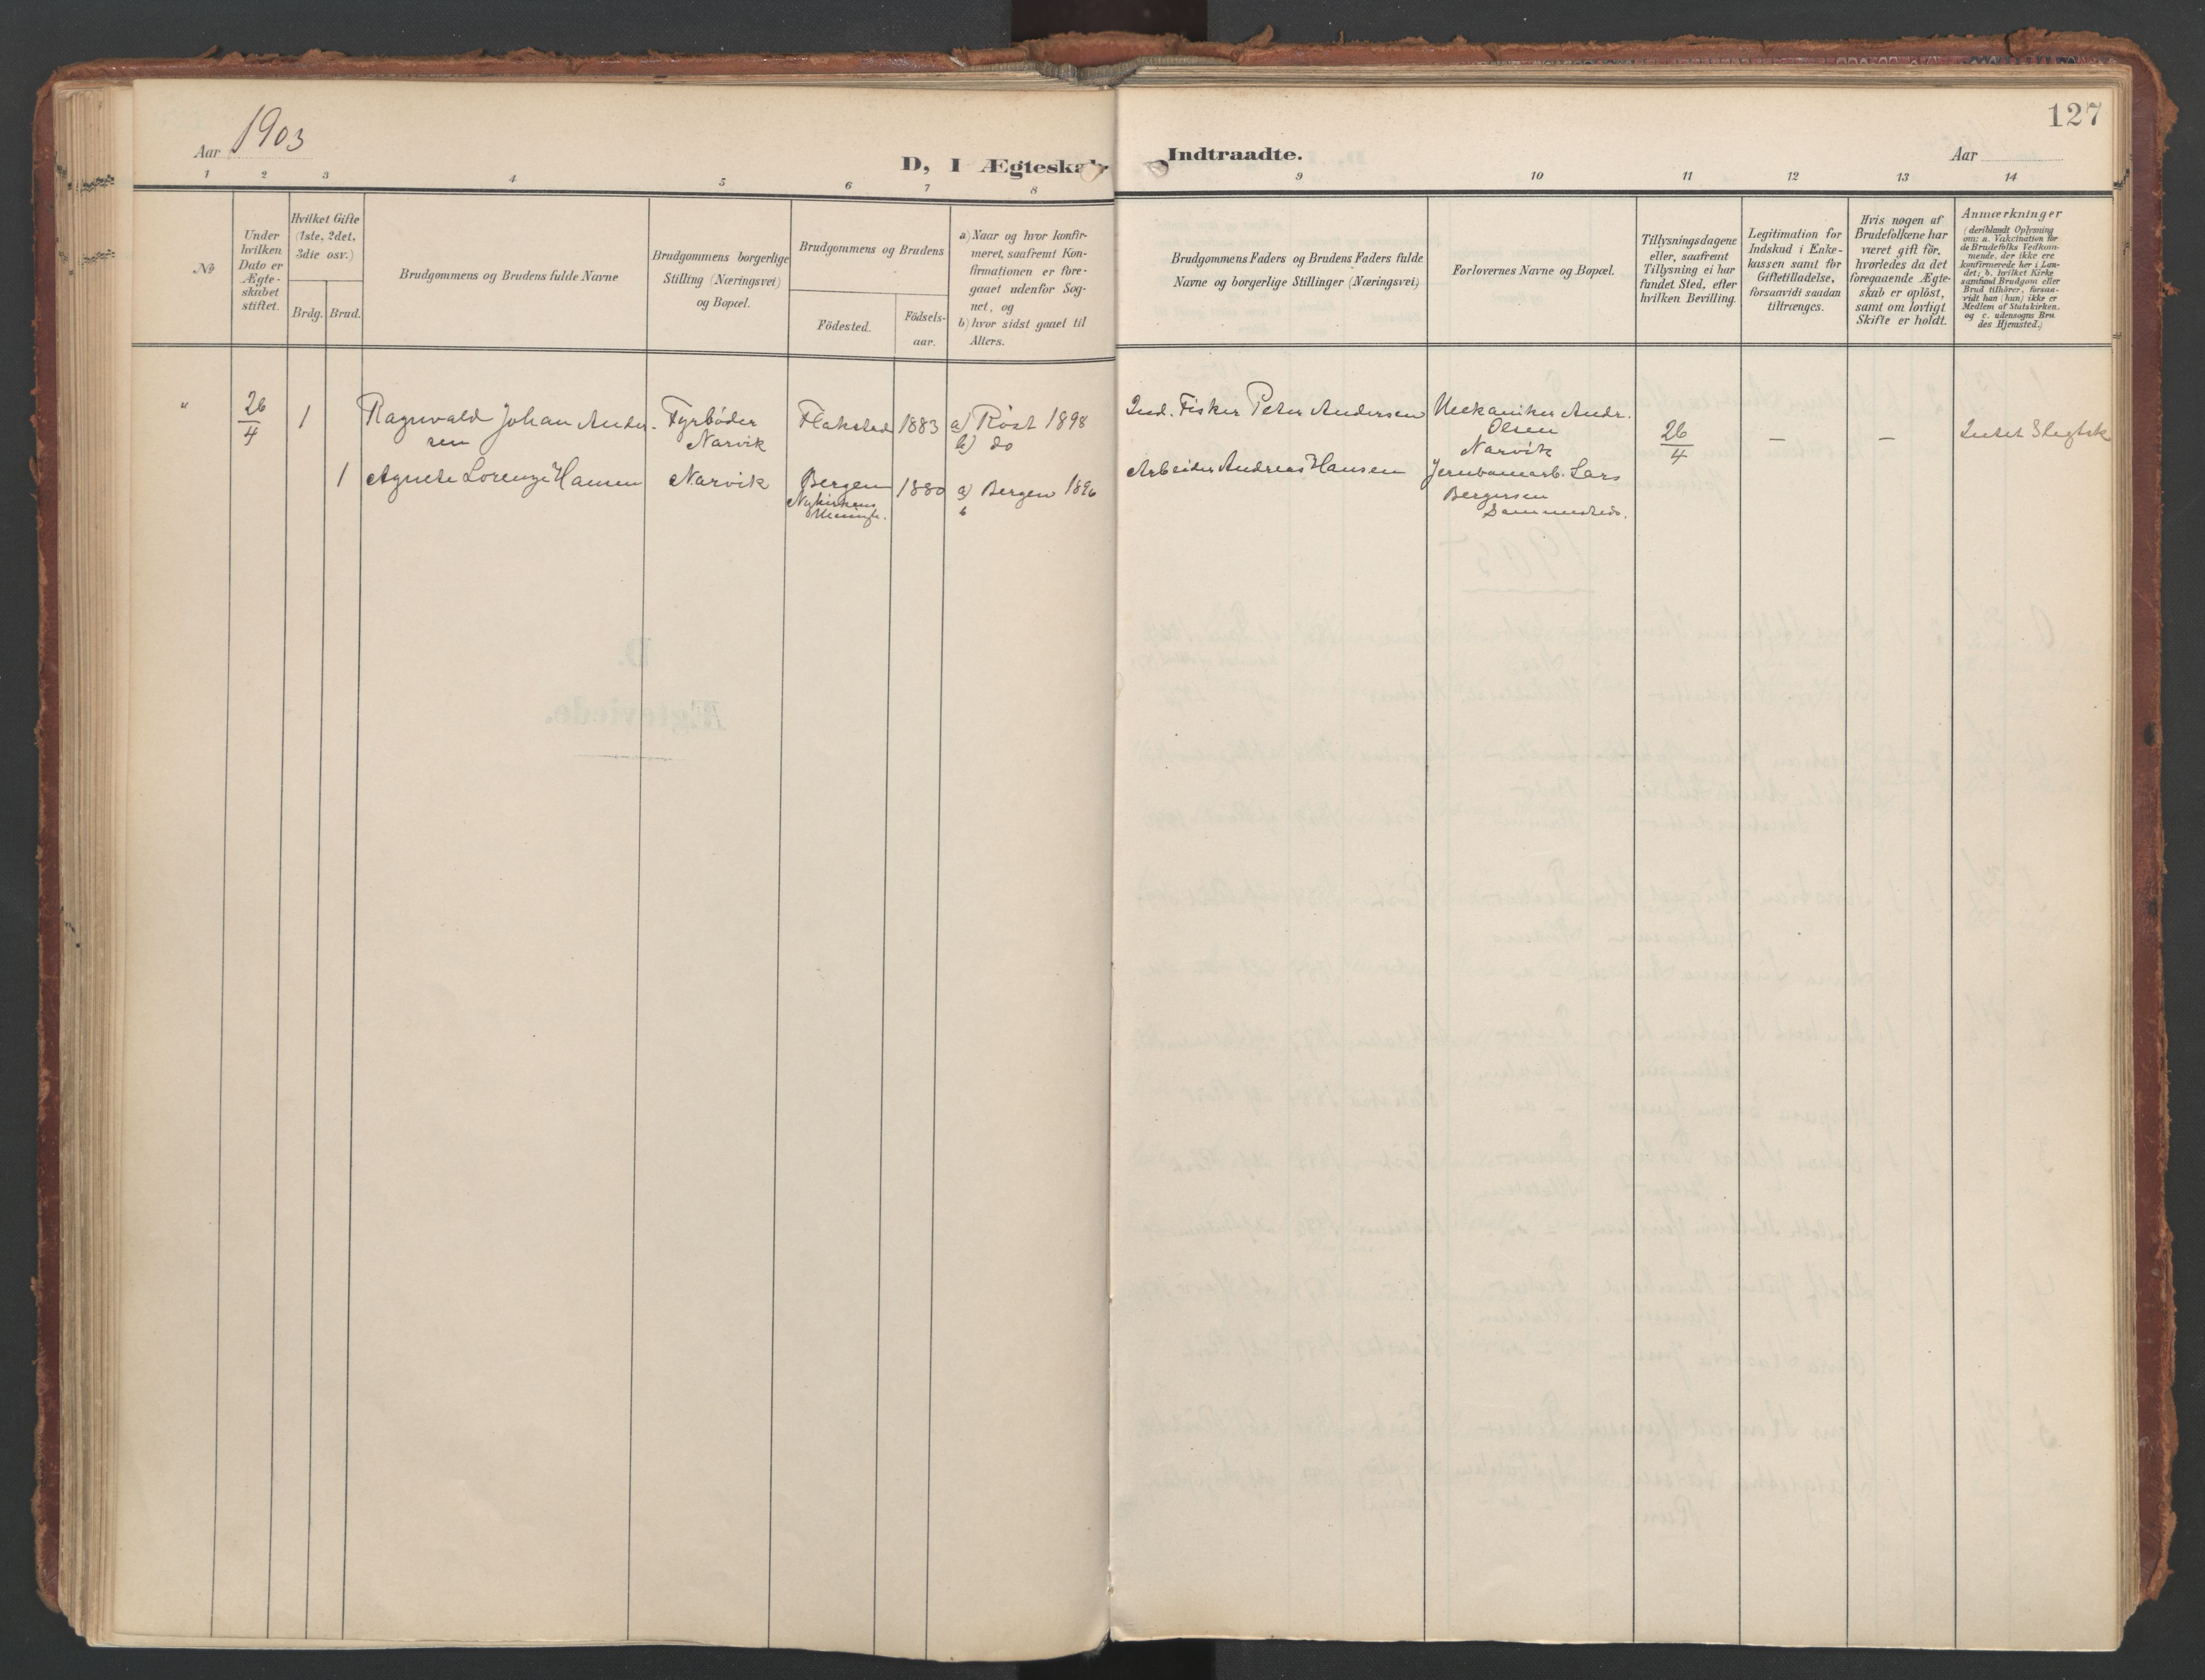 Aar 1903
D, I Ægteskab
Indtraadte.
Aar
127
1 2 3 4 5 6 7 8 9 10 11 12 13 14
No
Under
hvilken
Dato er
Ægte-
skabet
stiftet.
Hvilket Gifte
(1ste, 2det,
3die osv.)
Brdg. Brud.
Brudgommens og Brudens fulde Navne
Brudgommens borgerlige
Stilling (Næringsvei)
og Bopæl.
Brudgommens og Brudens
Födested.
Födsels-
aar.
a) Naar og hvor konfir-
meret, saafremt Kon-
firmationen er fore-
gaaet udenfor Sog-
net, og
b) hvor sidst gaaet til
Alters.
Brudgommens Faders og Brudens Faders fulde
Navne og borgerlige Stillinger (Næringsvei)
Forlovernes Navne og Bopæl.
Tillysningsdagene
eller, saafremt
Tillysning ei har
fundet Sted, efter
hvilken Bevilling.
Legitimation for
Indskud i Enke-
kassen samt for
Giftetilladelse,
forsaavidt saadan
tiltrænges.
Hvis nogen af
Brudefolkene har
været gift för,
hvorledes da det
foregaaende Ægte-
skab er oplöst,
samt om lovligt
Skifte er holdt.
Anmærkninger
(deriblandt Oplysning
om: a. Vakcination for
de Brudefolks Vedkom-
mende, der ikke ere
konfirmerede her i Lan-
det; b. hvilket Kirke
samfund Brudgom eller
Brud tilhörer, forsaa-
vidt han (hun) ikke er
Medlem af Statskirken,
og c. udensogns Bru-
des Hjemsted.)
" 26/4 1
Ragnvald Johan Ander-
sen
Fyrböder
Narvik
Flakstad
1883
a) Röst 1898
b) do
Ind. Fisker Peter Andersen
Mekaniker Andr.
Olsen
Narvik
26/4
—
—
Intet Slegtsk
1
Agnete Lorenze Hansen
Narvik
Bergen
Nykirkens
Menigh.
1880
a) Bergen 1896
b
Arbeider Andreas Hansen
Jernbanearb. Lars
Bergersen
Sammesteds.